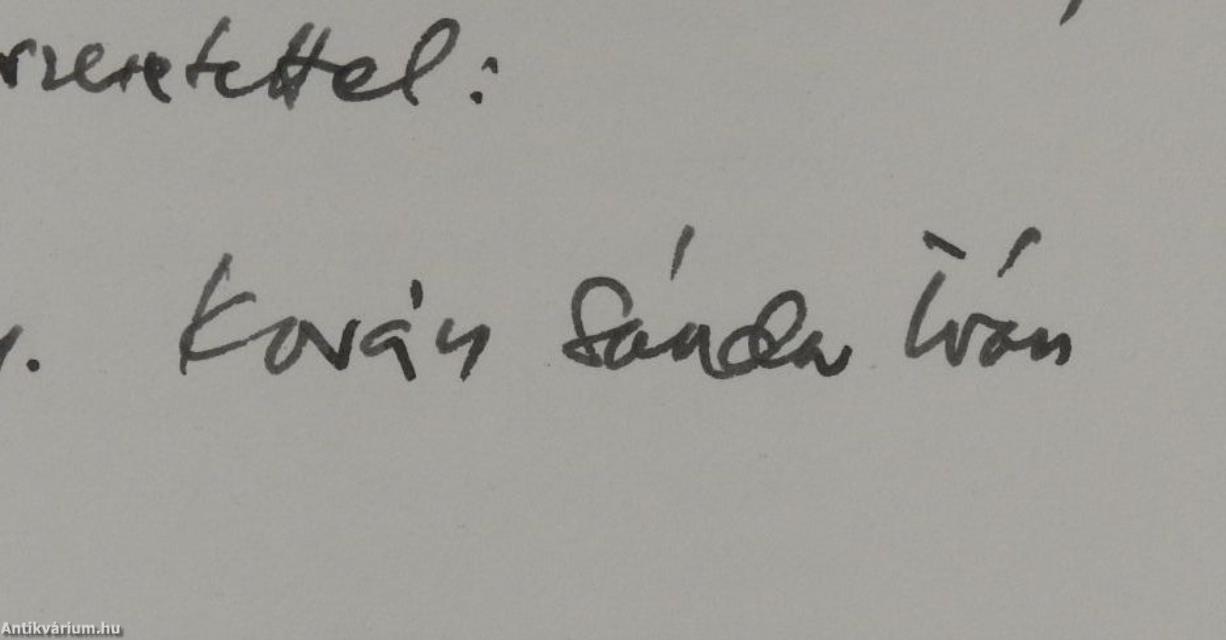 szeretettel:
Kovács Sándor Iván
Antikvárium.hu